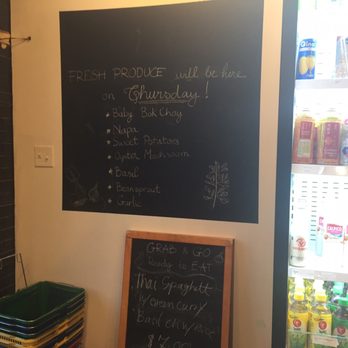 FRESH PRODUCE will be here
on Thursday!
Baby Bok Choy
Napa
Sweet Potatoes
Oyster Mushroom
Basil
Beansprout
Garlic
GRAB & GO
Ready to EAT
Thai Spaghetti
W/Green Curry